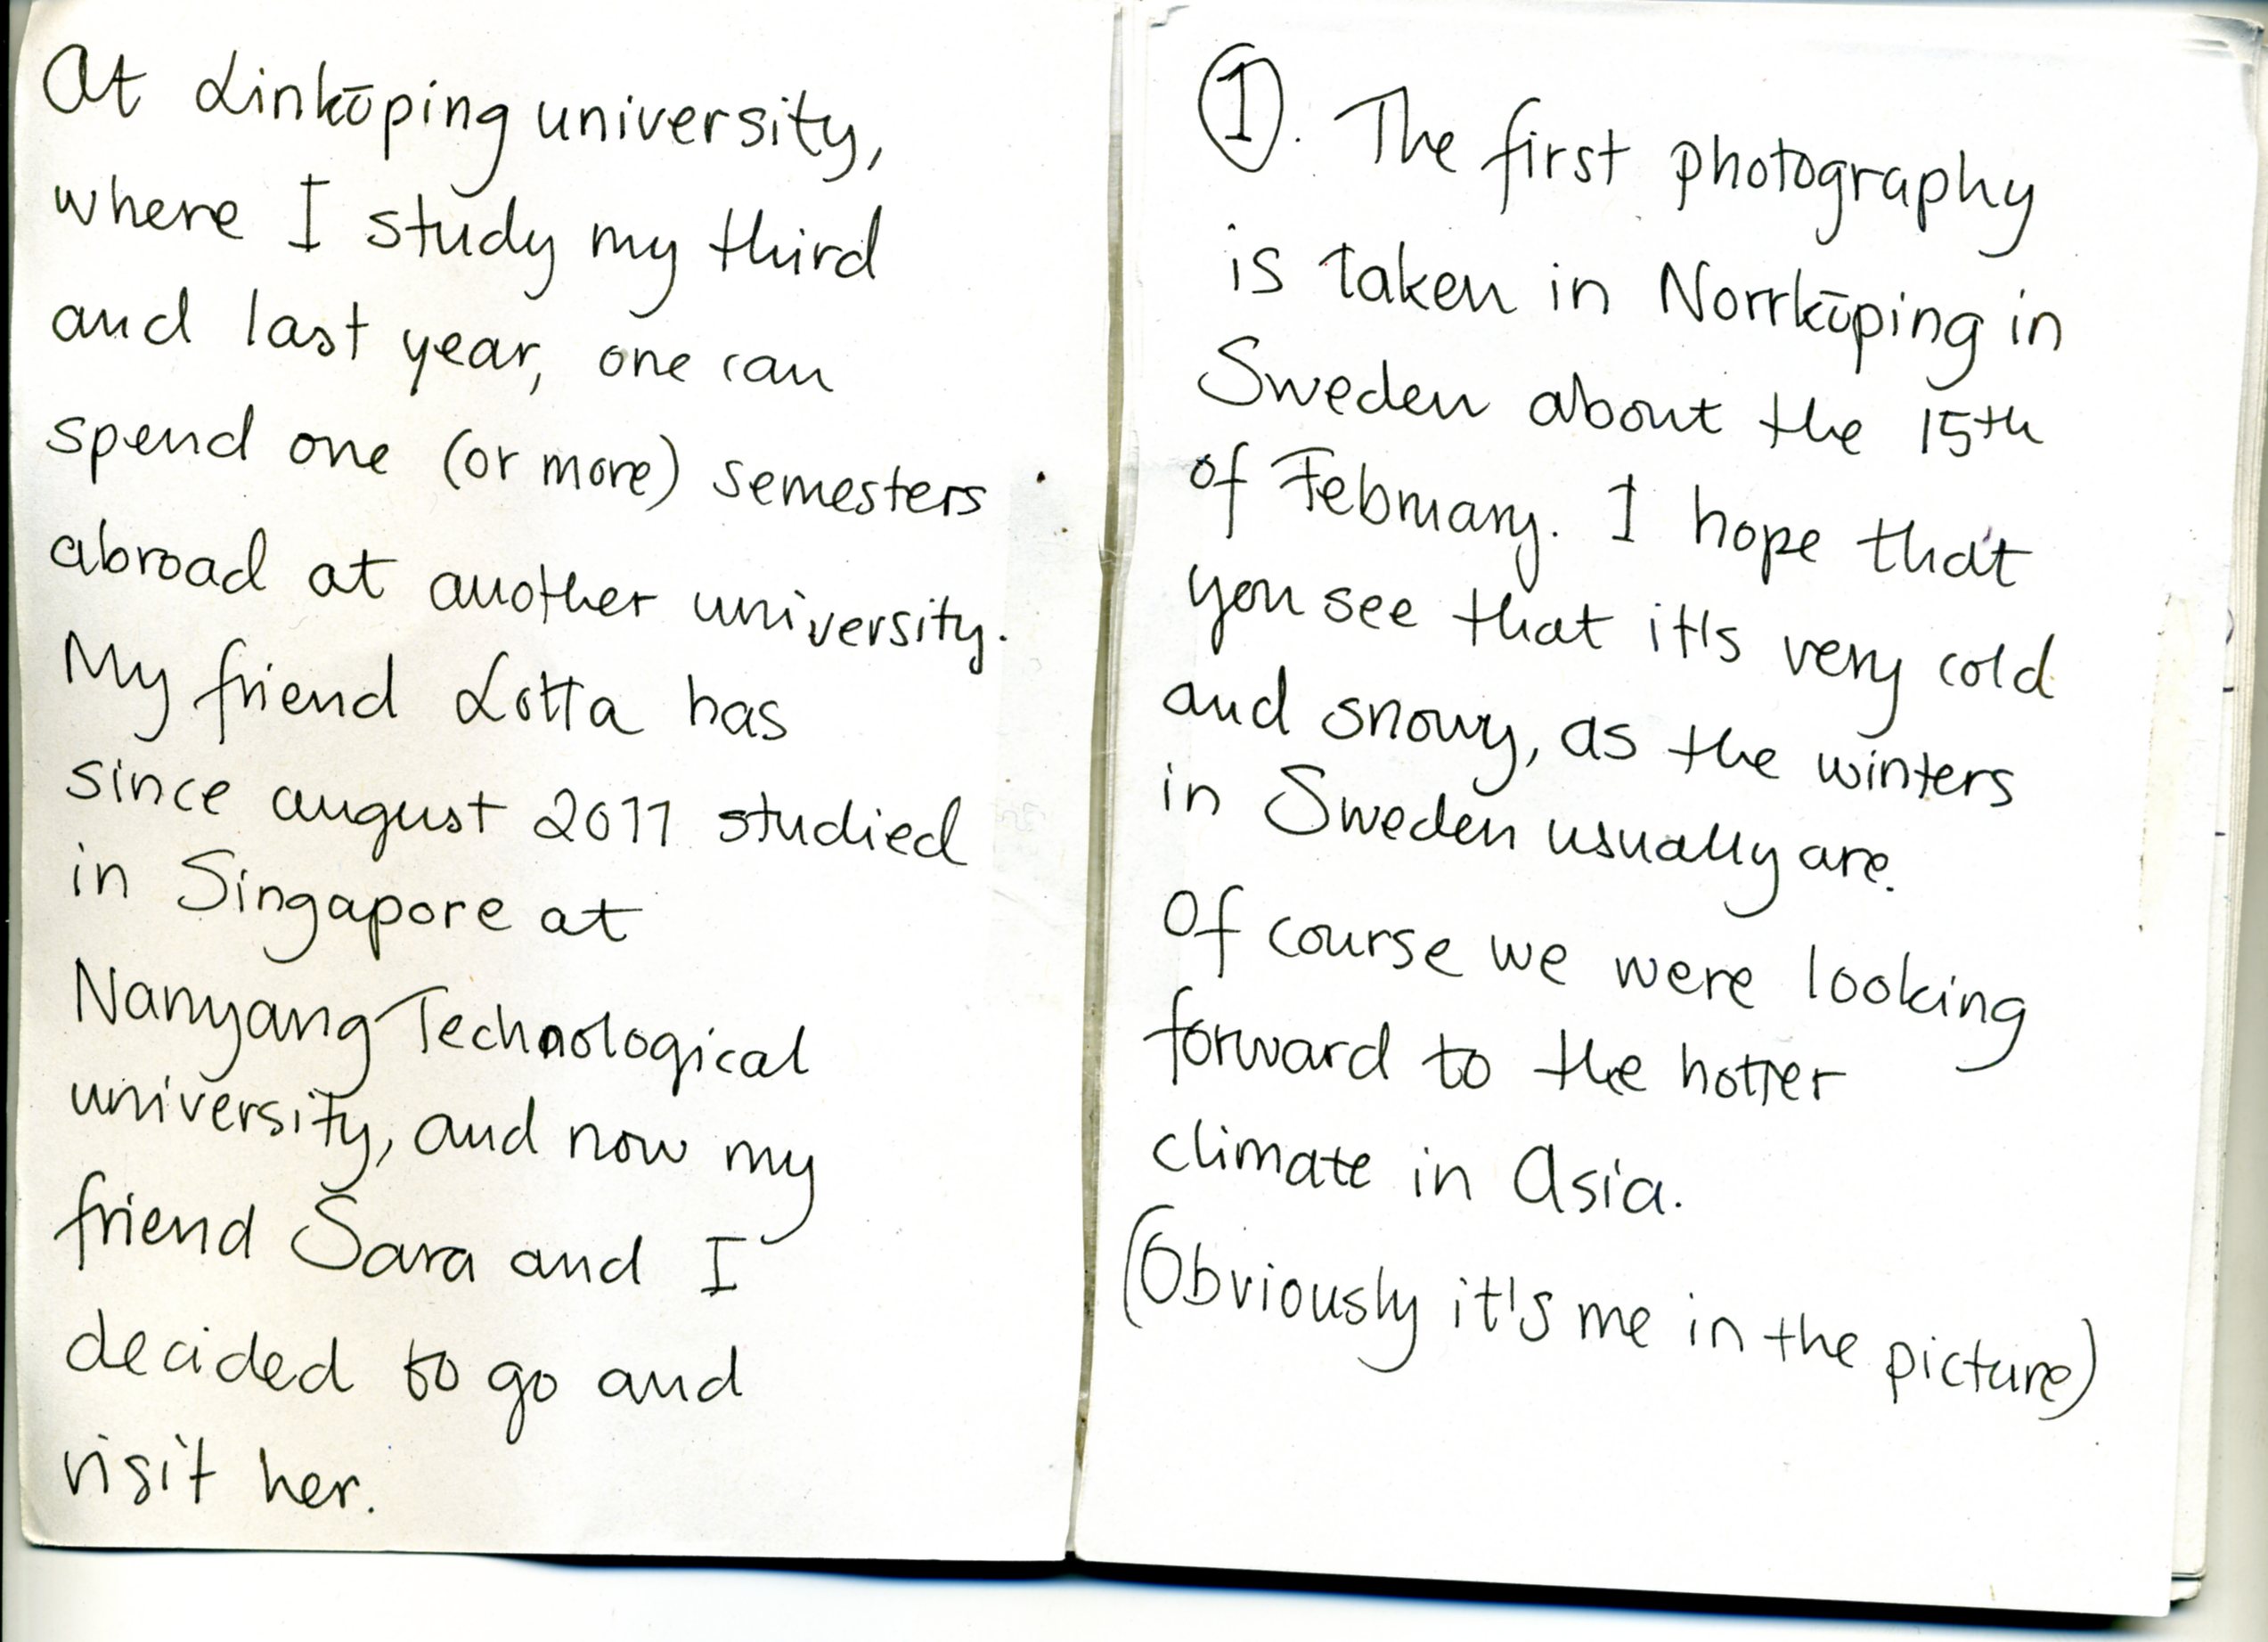 At Linköping university,
where I study my third
and last year, one can
spend one (or more) semesters
abroad at another university.
My friend Lotta has
since august 2011 studied
in Singapore at
Nanyang Technological
university, and now my
friend Sara and I
decided to go and
visit her.
1. The first photography
is taken in Norrköping in
Sweden about the 15th
of February. I hope that
you see that it's very cold
and snowy, as the winters
in Sweden usually are.
Of course we were looking
forward to the hotter
climate in Asia.
(Obviously it's me in the picture)